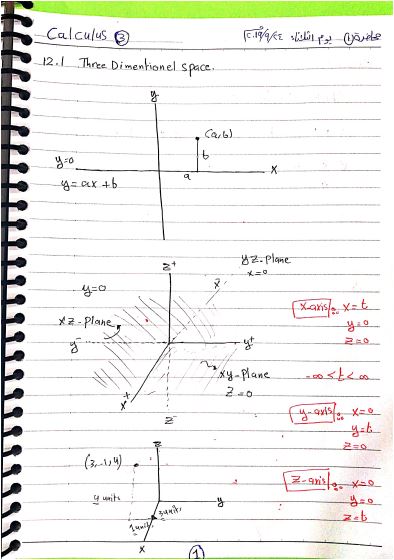 Calculus 3
محاضرة (1) يوم الثلاثاء ٢٠١٩/٩/٢٤
12.1 Three Dimentionel space.
y
(a,b)
b
y=0
a
x
y = ax + b
z+
yz-plane
x=0
y=0
x-
x-axis: x=t
y=0
z=0
xz-plane
y-
y+
xy-plane
z=0
-∞ < t < ∞
x+
z-
y-axis: x=0
y=t
z=0
z
(3,-1,4)
4 units
z-axis: x=0
y=0
z=t
y
3 units
1 unit
x
1